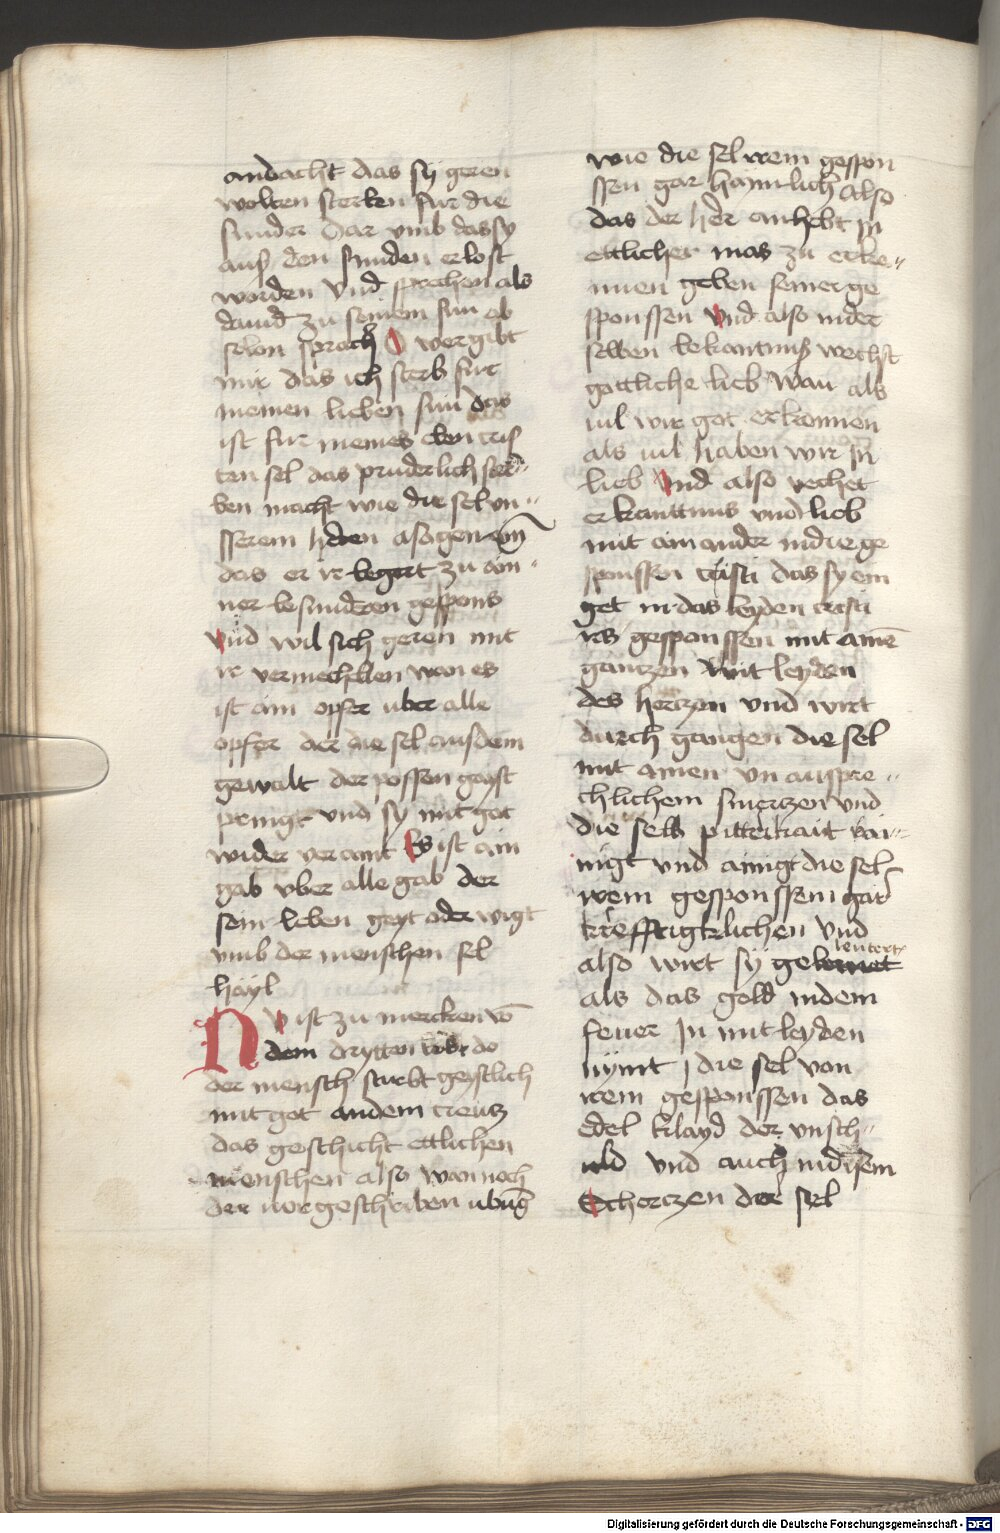 andacht das sÿ geren
wolten sterken fur die
sunder Dar vmb das sy
aus den sunden erlost
worden Vnd sprechen als
dauid zu seinem sun ab
selon sprach O wer gibt
mir das ich sterb fur
meinen lieben sun das
ist fur meines eben cris
ten sel das pruderlich ster„
ben macht wie die sel vn„
sserem heren
das er ir begert zu ain„
ner besundren gespons
Vnd wil sich geren mit
ir vermechellen wan es
ist ain opfer uber alle
opfer der die sel aus dem
gewalt der possen geyst
pringt vnd sy mit got
wider veraint Es ist ain
gab vber alle gab der
sein leben geyt oder wigt
vmb der menschen sel
häyl
NV ist zu mercken vō
dem drytten do
der mensch stirbt geystlich
mit got an dem creutz
das geschicht ettlichen
menschen also wan noch
der uor geschriben ubūg
wie die sel irem gespon
ssen gar haimlich also
das der her anhebt in
ettlicher mas zu erke„
nnen geben seiner ge
sponssen Vnd also in der
selben bekantnuß wechst
gottliche lieb Wan als
uil wir got erkennen
als uil haben wir in
lieb Vnd also rechet
erkanttnus vnd lieb
mit ain ander in die ge
sponssen cristi das sy ein
get in das leyden cristi
irs gesponssen mit ainē
gantzen mit leyden
des hertzen vnd wirt
durch gangen die sel
mit ainen vn auspre„
chlichem smertzen vnd
die selb pitterkait rai„
nigt vnd ainigt die sel
irem gesponssem gar
krefftigklichen Vnd
also wirt sÿ geleutert
als das gold in dem
feuer In mit leyden
nÿmt die sel von
irem gesponssen das
edel klayd der vnsch„
uld vnd auch in disem
Schertzen der sel
Digitalisierung gefördert durch die Deutsche Forschungsgemeinschaft - DFG